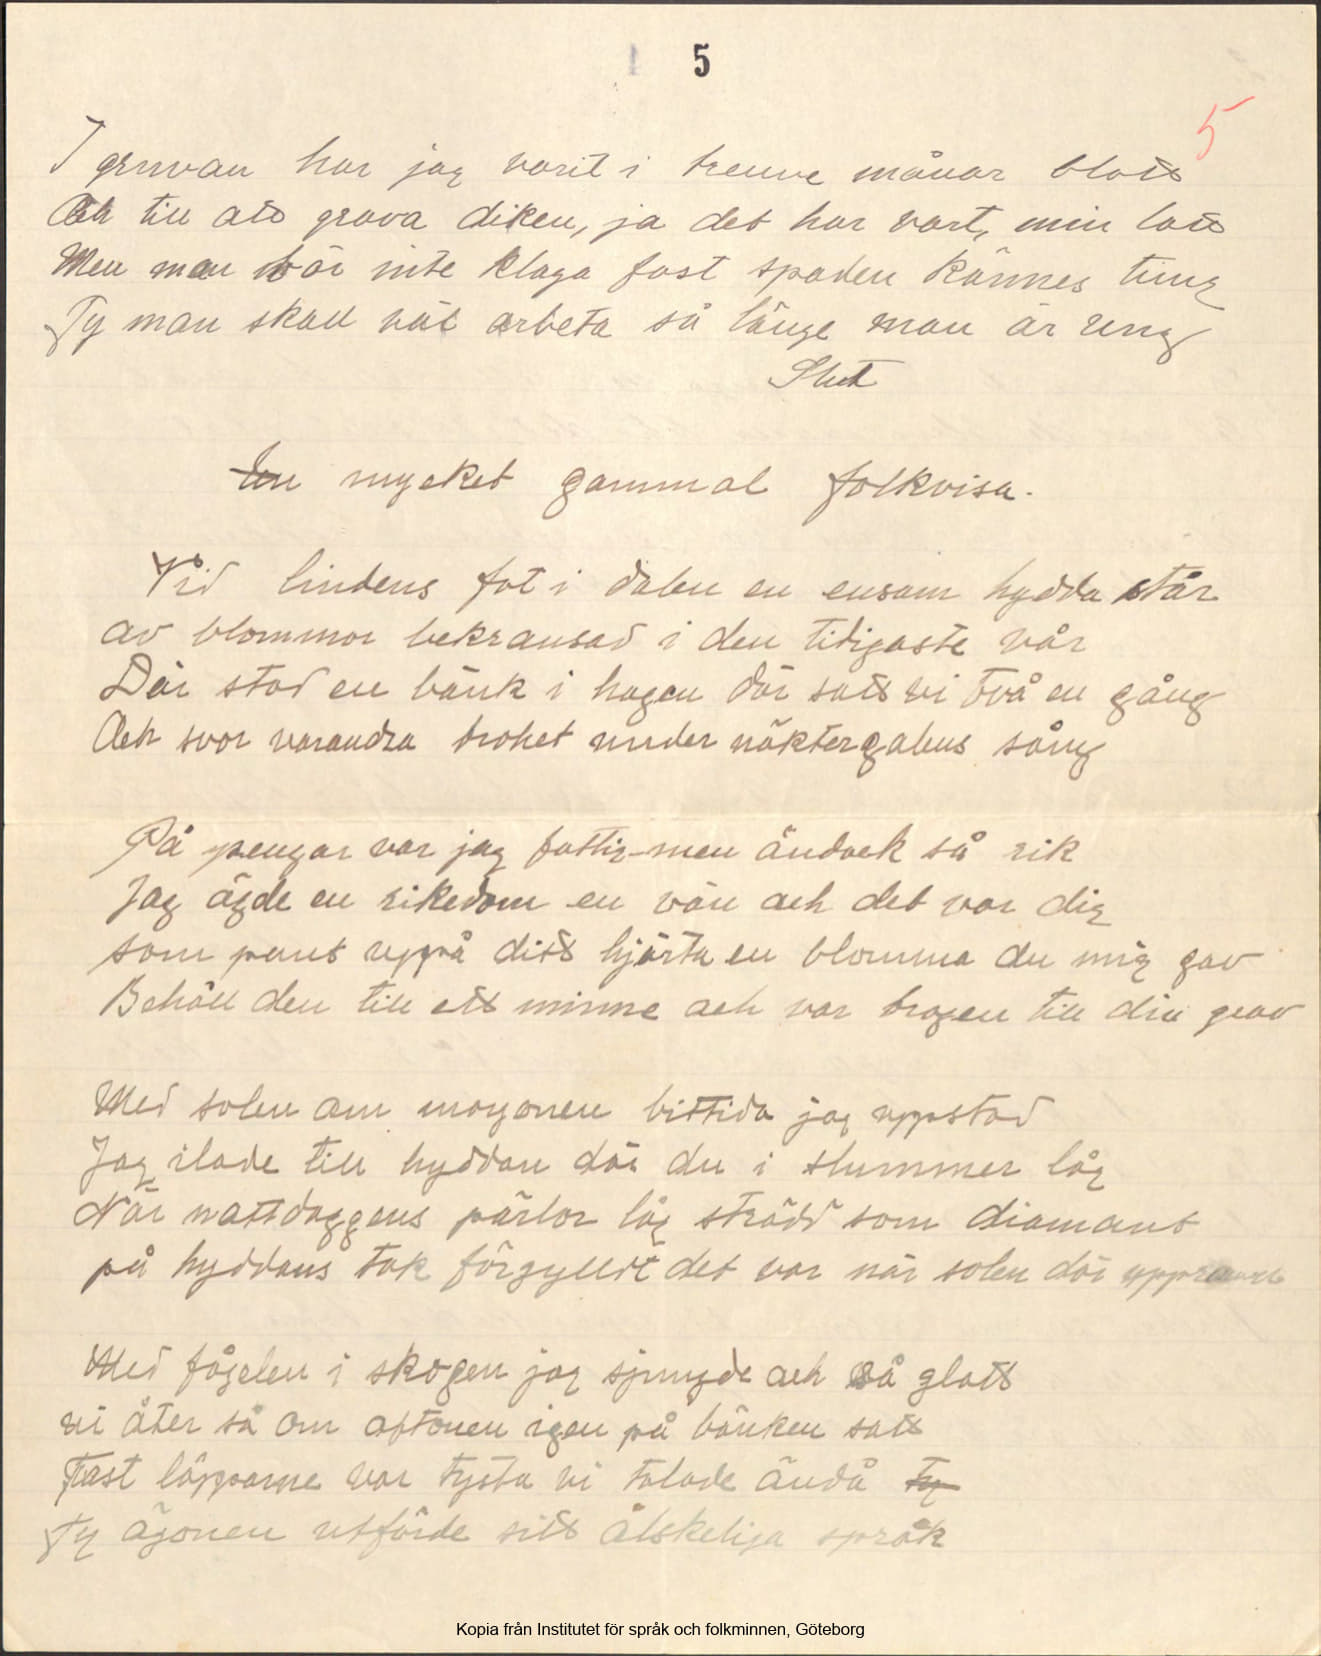 5
5
I gruvan har jag varit i trenne månar blott
Och till att grava diken, ja det har vart, min lott
Men man bör inte klaga fast spaden kännes tung
Ty man skall väl arbeta så länge man är ung
Slut
En mycket gammal folkvisa.
Vid lindens fot i dalen en ensam hydda står
av blommor bekransad i den tidigaste vår
Där stod en bänk i hagen där satt vi två en gång
Och svor varandra trohet under näktergalens sång
På pengar var jag fattig men ändock så rik
Jag ägde en rikedom en vän och det var dig
som pant uppå ditt hjärta en blomma du mig gav
Behåll den till ett minne och var trogen till din grav
Med solen om morgonen bittida jag uppstod
Jag ilade till hyddan där du i slummer låg
När nattdaggens pärlor låg strödd som diamant
på hyddans tak förgylldt det var när solen där upprann
Med fågelen i skogen jag sjungde och så glatt
vi åter så om aftonen igen på bänken satt
Fast läpparne var tysta vi talade ändå Ty
Ty ögonen utförde sitt älskeliga språk
Kopia från Institutet för språk och folkminnen, Göteborg